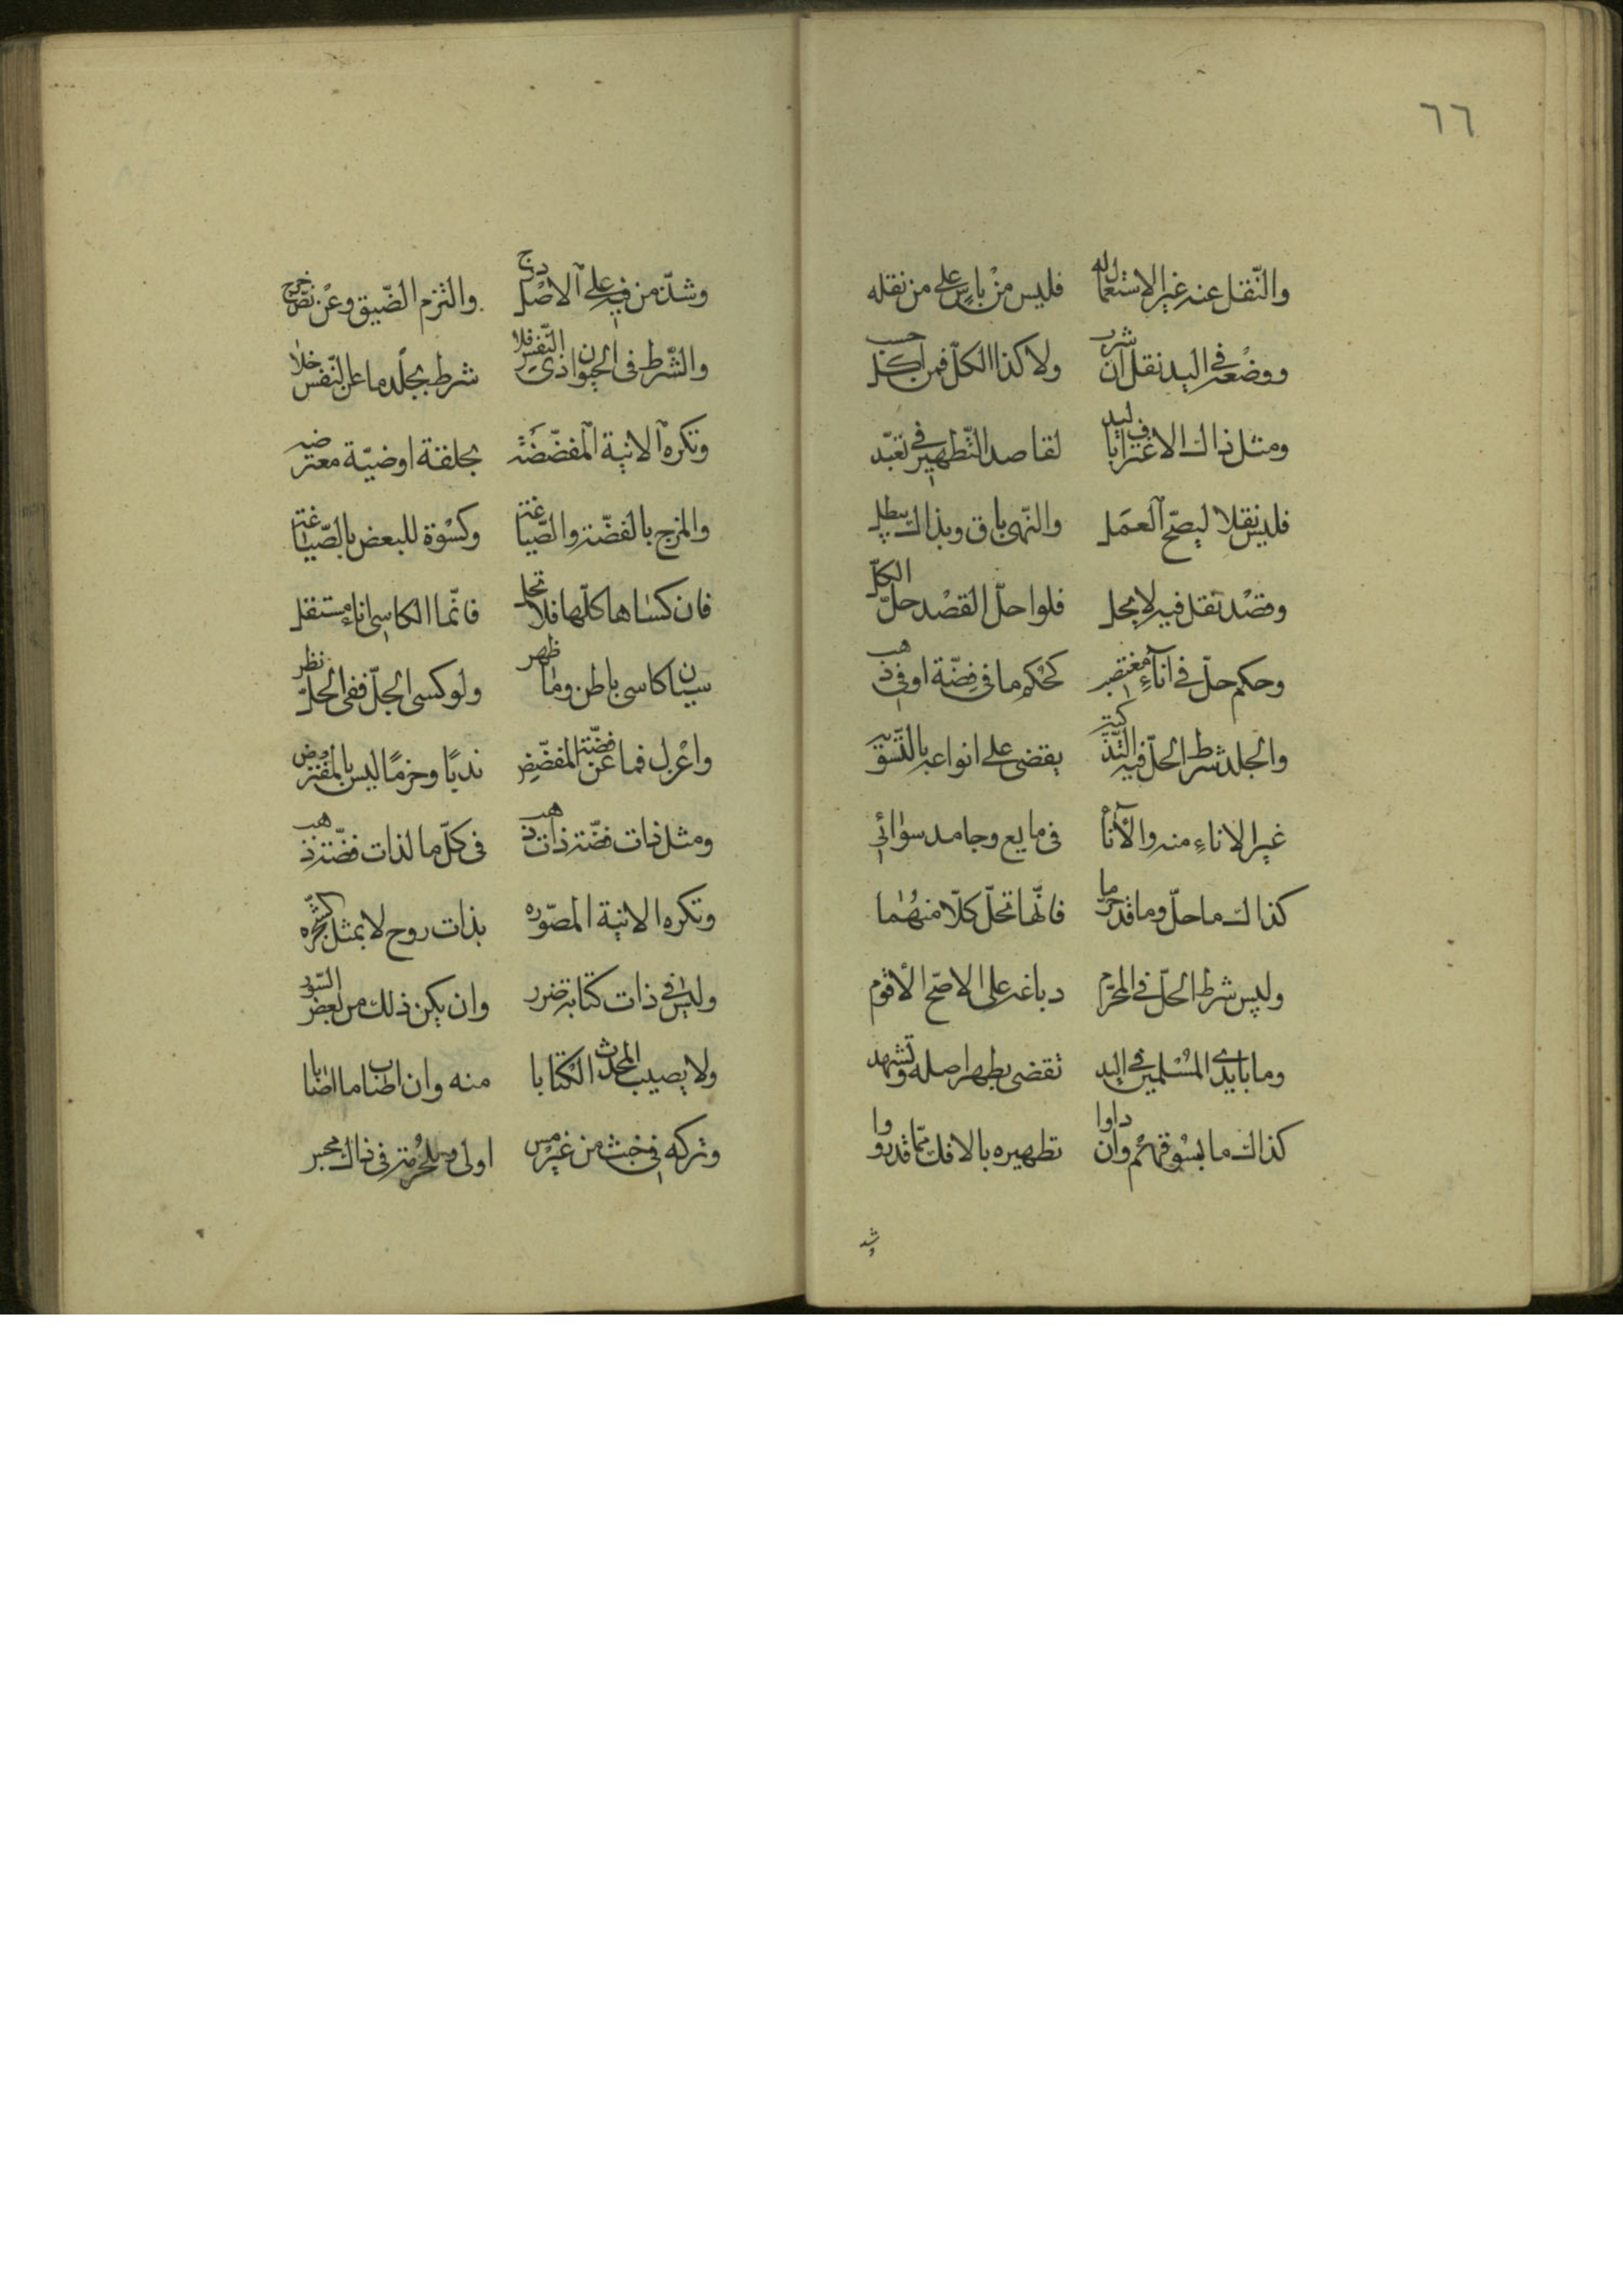 ٦٦
والنّقل عنه غير الاستعمال له فليس من بأس على من نقله
ووضعه في اليد نقل ان شرب ولا كذا الكلّ فمن اكل حسب
ومثل ذاك الاغتراف باليد لقاصد التّطهير في تعبّد
فليس نقلا ليصحّ العمل والنّهى باق وبذاك يبطل
وقصد نقل فيه لا يحل فلو احلّ القصد حلّ الكلّ
وحكم حلّ في اناء مغتصب كحكم ما في فضّة او في ذهب
والجلد شرط الحلّ فيه التّذكيه يقضى على انواعه بالتّسويه
غير الاناء منه والأناء في مايع وجامد سوائي
كذاك ما حلّ وما قد حرما فانّها تحلّ كلّا منهما
وليس شرط الحلّ في المحرّم دباغه على الاصحّ الأقوم
وما بايدى المسلمين في اليد تقضى بطهر اصله وتشهد
كذاك ما بسوقهم وان داوا تطهيره بالافك ممّا قد رووا
وشذ
وشذّ من فيه على الاصل درج والتزم الضّيق وعن نصّ خرج
والشّرط في الحيوان ذى النّفس فلا شرط بجلد ما عن النّفس خلا
وتكره الانية المفضّضه بحلقة او ضبّة معترضه
والمزج بالفضّة والصّياغة وكسوة للبعض بالصّياغة
فان كساها كلّها فلا تحل فانّما الكاسى اناء مستقل
سيان كاسى باطن وما ظهر ولو كسى الجلّ ففى الحلّ نظر
واعزل فما عن فضّة المفضّض ندبًا وحزمًا ليس بالمفترض
ومثل ذات فضّة ذات ذهب في كلّ ما لذات فضّة ذهب
وتكره الانية المصوّره بذات روح لا بمثل كشجره
وليس في ذات كتابة ضرر وان يكن ذلك من بعض السّور
ولا يصيب المحدث الكتابا منه وان اطاب ما اصابا
وتركه في خبث من غير مس اولى